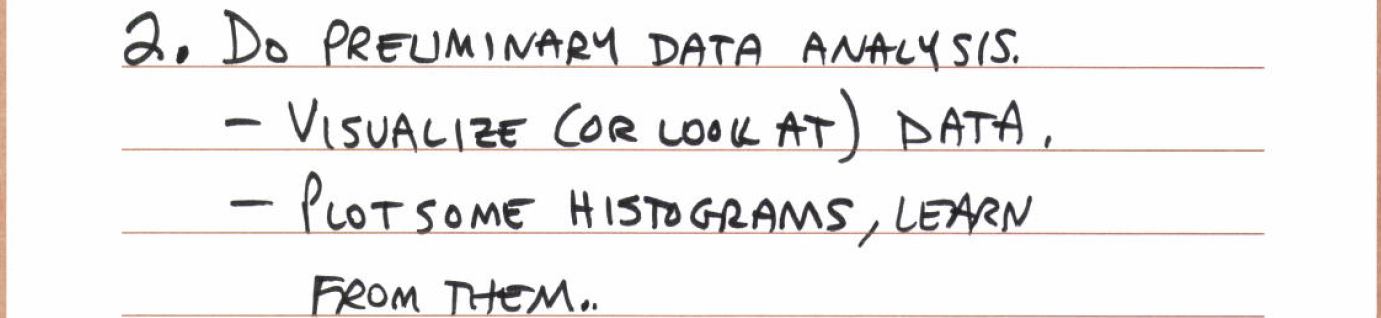 2. DO PRELIMINARY DATA ANALYSIS.
- VISUALIZE (OR LOOK AT) DATA.
- PLOT SOME HISTOGRAMS, LEARN
FROM THEM..